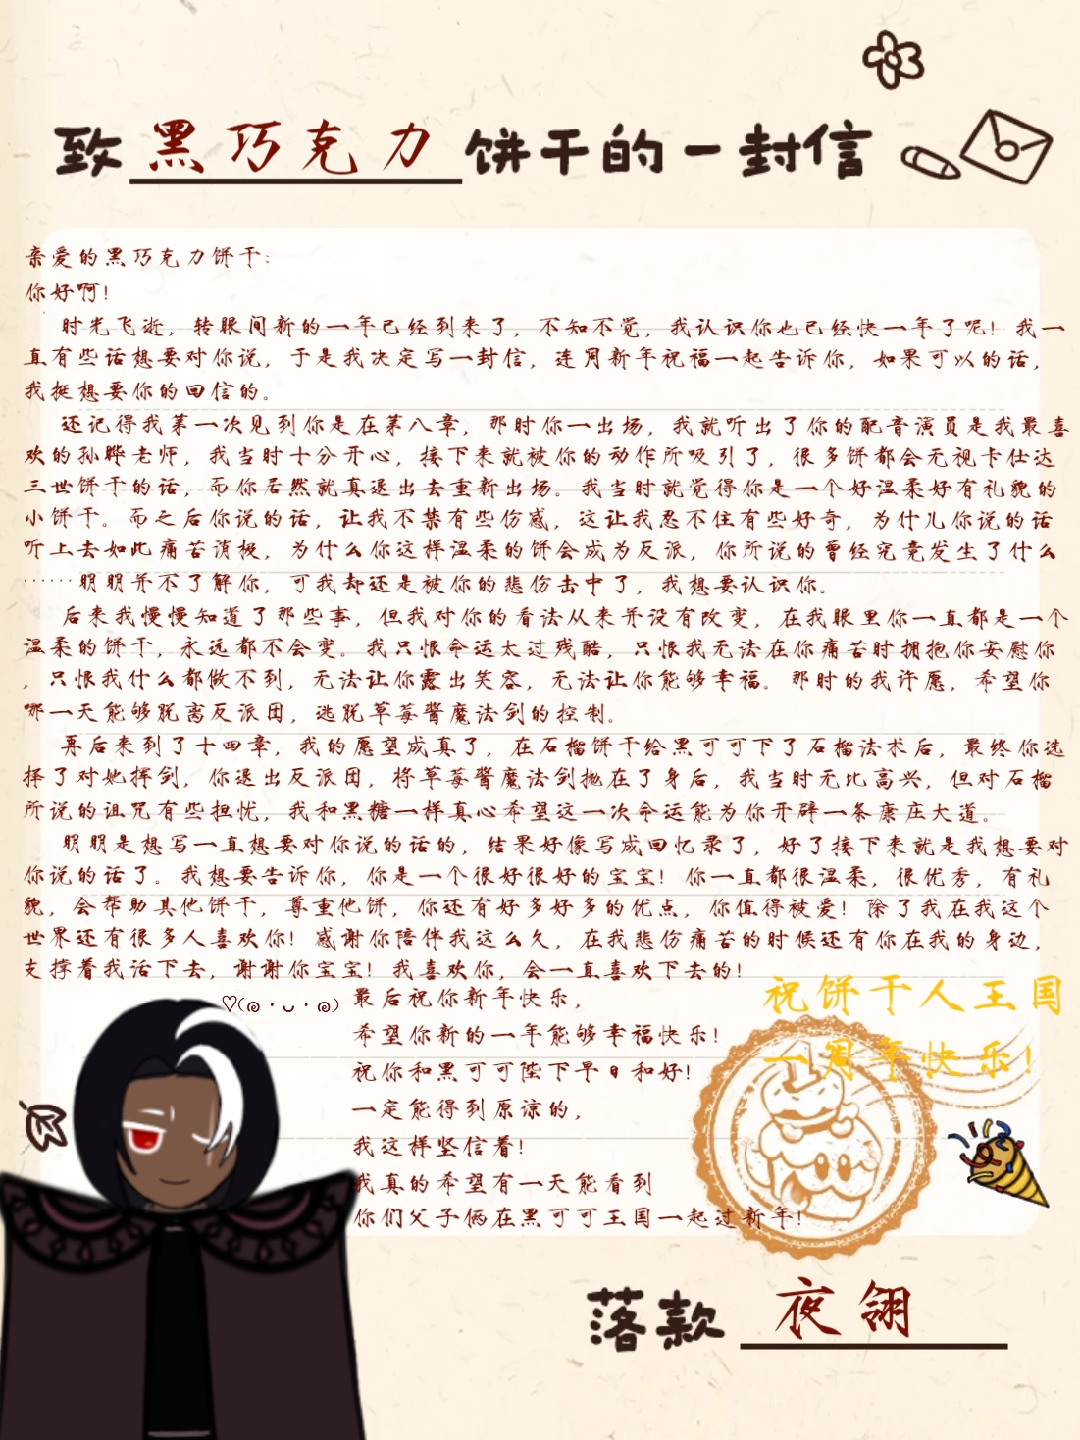 致黑巧克力饼干的一封信
亲爱的黑巧克力饼干:
你好啊!
时光飞逝，转眼间新的一年已经到来了，不知不觉，我认识你也已经快一年了呢!我一
直有些话想要对你说，于是我决定写一封信，连同新年祝福一起告诉你，如果可以的话，
我挺想要你的回信的。
还记得我第一次见到你是在第八章，那时你一出场，我就听出了你的配音演员是我最喜
欢的孙晔老师，我当时十分开心，接下来就被你的动作所吸引了，很多饼都会无视卡仕达
三世饼干的话，而你居然就真退出去重新出场。我当时就觉得你是一个好温柔好有礼貌的
小饼干。而之后你说的话，让我不禁有些伤感，这让我忍不住有些好奇，为什儿你说的话
听上去如此痛苦消极，为什么你这样温柔的饼会成为反派，你所说的曾经究竟发生了什么
······明明并不了解你，可我却还是被你的悲伤击中了，我想要认识你。
后来我慢慢知道了那些事，但我对你的看法从来并没有改变，在我眼里你一直都是一个
温柔的饼干，永远都不会变。我只恨命运太过残酷，只恨我无法在你痛苦时拥抱你安慰你
，只恨我什么都做不到，无法让你露出笑容，无法让你能够幸福。那时的我许愿，希望你
哪一天能够脱离反派团，逃脱草莓酱魔法剑的控制。
再后来到了十四章，我的愿望成真了，在石榴饼干给黑可可下了石榴法术后，最终你选
择了对她挥剑，你退出反派团，将草莓酱魔法剑抛在了身后，我当时无比高兴，但对石榴
所说的诅咒有些担忧，我和黑糖一样真心希望这一次命运能为你开辟一条康庄大道。
明明是想写一直想要对你说的话的，结果好像写成回忆录了，好了接下来就是我想要对
你说的话了。我想要告诉你，你是一个很好很好的宝宝!你一直都很温柔，很优秀，有礼
貌，会帮助其他饼干，尊重他饼，你还有好多好多的优点，你值得被爱!除了我在我这个
世界还有很多人喜欢你!感谢你陪伴我这么久，在我悲伤痛苦的时候还有你在我的身边，
支撑着我活下去，谢谢你宝宝!我喜欢你，会一直喜欢下去的!
♡(๑・ᴗ・๑)
最后祝你新年快乐，
希望你新的一年能够幸福快乐!
祝你和黑可可陛下早日和好!
一定能得到原谅的，
我这样坚信着!
我真的希望有一天能看到
你们父子俩在黑可可王国一起过新年!
祝饼干人王国
一周年快乐!
落款 夜翎